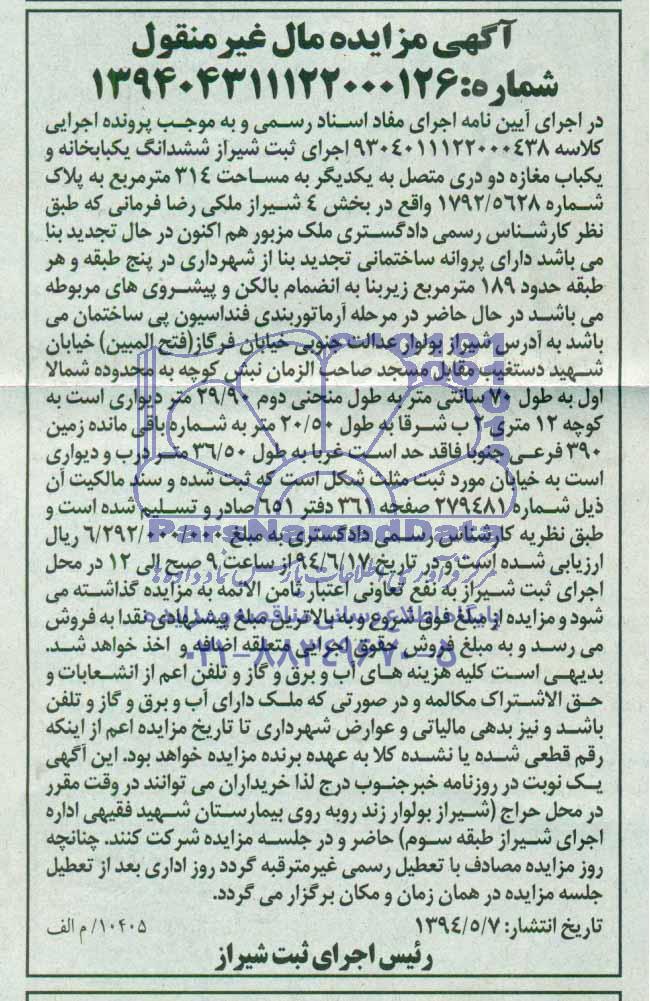 آگهی مزایده مال غیر منقول
شماره: ۱۳۹۴۰۴۳۱۱۱۲۲۰۰۰۱۲۶
در اجرای آیین نامه اجرای مفاد اسناد رسمی و به موجب پرونده اجرایی
کلاسه ۹۳۰۴۰۱۱۱۲۲۰۰۰۴۳۸ اجرای ثبت شیراز ششدانگ یکبابخانه و
یکباب مغازه دو دری متصل به یکدیگر به مساحت ۳۱۴ مترمربع به پلاک
شماره ۱۷۹۲/۵۶۲۸ واقع در بخش ۴ شیراز ملکی رضا فرمانی که طبق
نظر کارشناس رسمی دادگستری ملک مزبور هم اکنون در حال تجدید بنا
می باشد دارای پروانه ساختمانی تجدید بنا از شهرداری در پنج طبقه و هر
طبقه حدود ۱۸۹ مترمربع زیربنا به انضمام بالکن و پیشروی های مربوطه
می باشد در حال حاضر در مرحله آرماتوربندی فنداسیون پی ساختمان می
باشد به آدرس شیراز بولوار عدالت جنوبی خیابان فرگاز(فتح المبین) خیابان
شهید دستغیب مقابل مسجد صاحب الزمان نبش کوچه به محدوده شمالا
اول به طول ۷۰ سانتی متر به طول منحنی دوم ۲۹/۹۰ متر دیواری است به
کوچه ۱۲ متری ۲ ب شرقا به طول ۲۰/۵۰ متر به شماره باقی مانده زمین
۳۹۰ فرعی جنوبا فاقد حد است غربا به طول ۳۶/۵۰ متر درب و دیواری
است به خیابان مورد ثبت مثلث شکل است که ثبت شده و سند مالکیت آن
ذیل شماره ۲۷۹۴۸۱ صفحه ۳۶۱ دفتر ۶۵۱ صادر و تسلیم شده است و
ParsNamadData
طبق نظریه کارشناس رسمی دادگستری به مبلغ ۶/۲۹۲/۰۰۰/۰۰۰ ریال
ارزیابی شده است و در تاریخ ۹۴/۶/۱۷ از ساعت ۹ صبح الی ۱۲ در محل
اجرای ثبت شیراز به نفع تعاونی اعتبار ثامن الائمه به مزایده گذاشته می
شود و مزایده از مبلغ فوق شروع و به بالاترین مبلغ پیشنهادی نقدا به فروش
می رسد و به مبلغ فروش حقوق اجرایی متعلقه اضافه و اخذ خواهد شد.
بدیهی است کلیه هزینه های آب و برق و گاز و تلفن اعم از انشعابات و
حق الاشتراک مکالمه و در صورتی که ملک دارای آب و برق و گاز و تلفن
باشد و نیز بدهی مالیاتی و عوارض شهرداری تا تاریخ مزایده اعم از اینکه
رقم قطعی شده یا نشده کلا به عهده برنده مزایده خواهد بود. این آگهی
یک نوبت در روزنامه خبرجنوب درج لذا خریداران می توانند در وقت مقرر
در محل حراج (شیراز بولوار زند روبه روی بیمارستان شهید فقیهی اداره
اجرای شیراز طبقه سوم) حاضر و در جلسه مزایده شرکت کنند. چنانچه
روز مزایده مصادف با تعطیل رسمی غیرمترقبه گردد روز اداری بعد از تعطیل
جلسه مزایده در همان زمان و مکان برگزار می گردد.
تاریخ انتشار: ۱۳۹۴/۵/۷ ۱۰۴۰۵/ م الف
رئیس اجرای ثبت شیراز